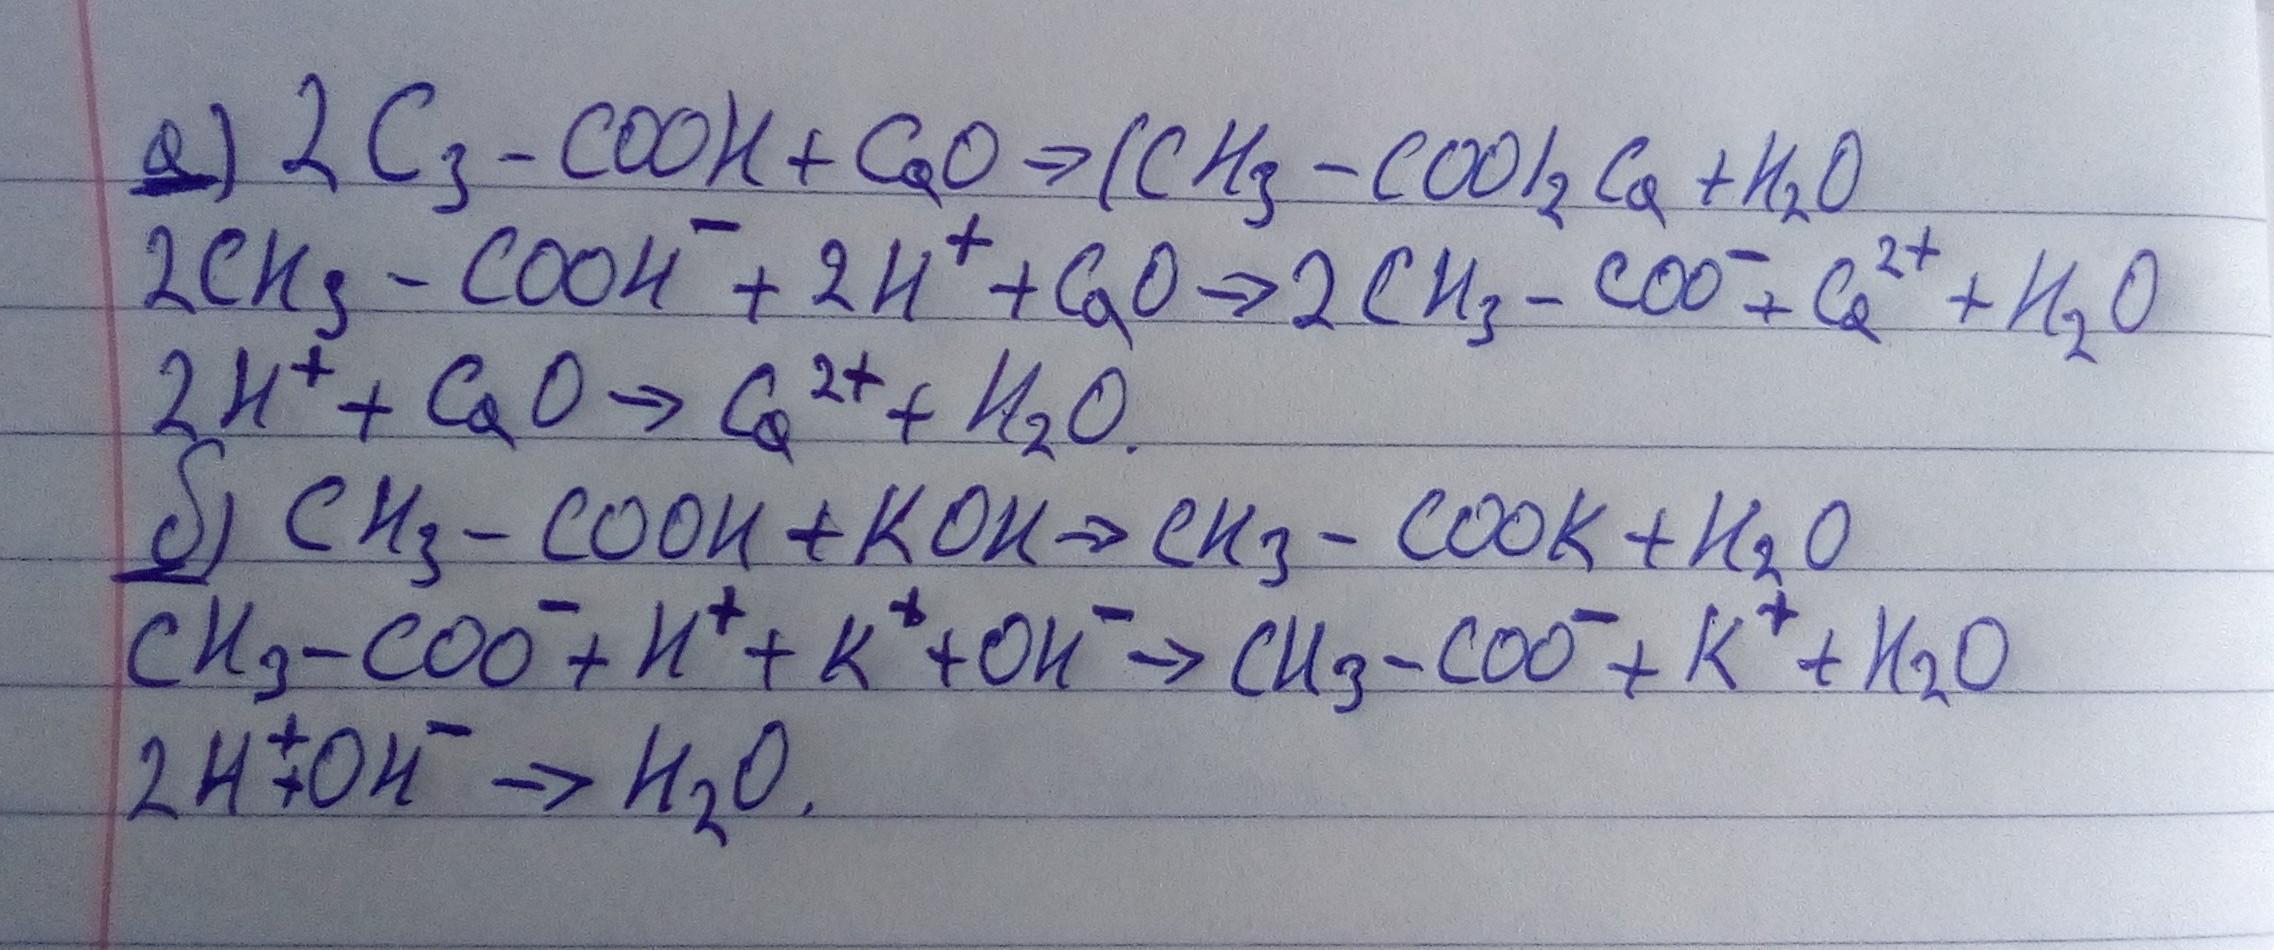 а) 2C₃-COOH + CaO → (CH₃-COO)₂Ca + H₂O
2CH₃-COOH⁻ + 2H⁺ + CaO → 2CH₃-COO⁻ + Ca²⁺ + H₂O
2H⁺ + CaO → Ca²⁺ + H₂O.
б) CH₃-COOH + KOH → CH₃-COOK + H₂O
CH₃-COO⁻ + H⁺ + K⁺ + OH⁻ → CH₃-COO⁻ + K⁺ + H₂O
2H⁺ + OH⁻ → H₂O.